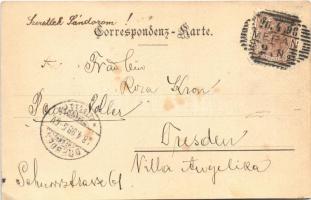 Szeretlek Sándorom!
Correspondenz-Karte.
Fräulein
Rosa Kron
Adler
Dresden
Villa Angelika
Schnorrstrasse 61
MERAN